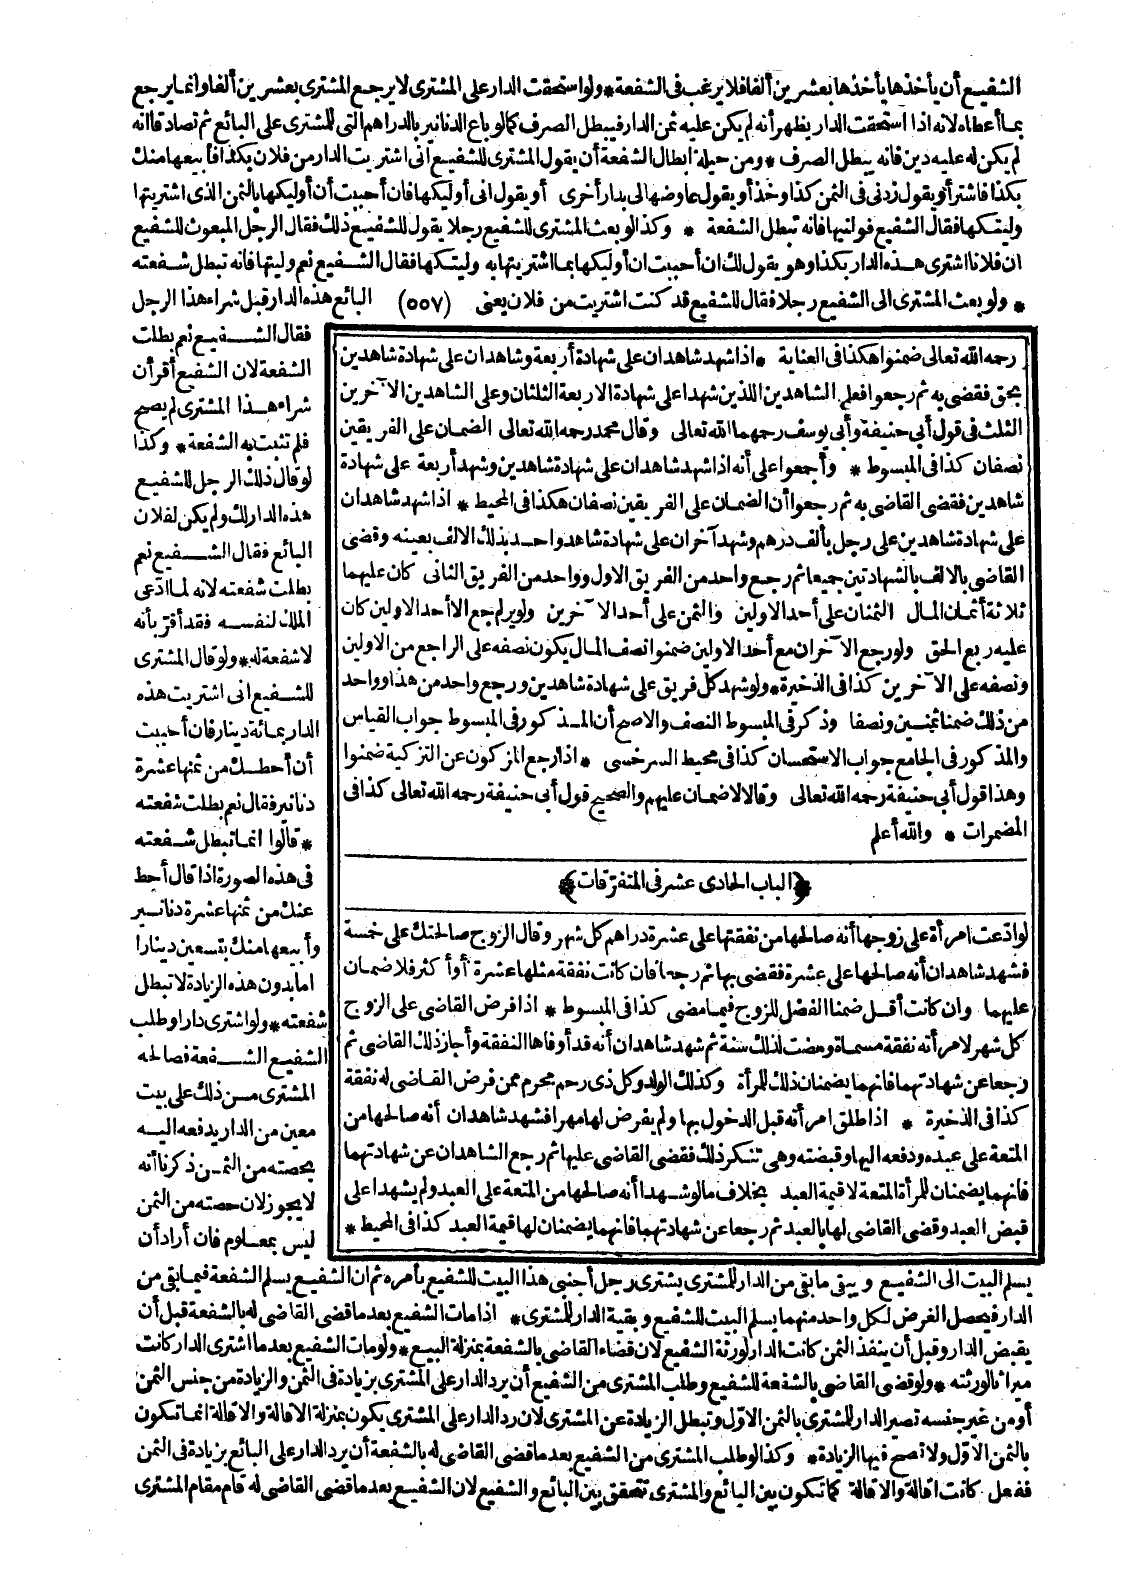 الشفيع أن يأخذها يأخذها بعشرين ألفا فلا يرغب فى الشفعة * ولو استحقت الدار على المشترى لا يرجع المشترى بعشرين ألفا وانما يرجع
بما أعطاه لانه اذا استحقت الدار يظهر أنه لم يكن عليه ثمن الدار فيبطل الصرف كما لو باع الدنانير بالدراهم التى للمشترى على البائع ثم تصادقا انه
لم يكن له عليه دين فانه يبطل الصرف * ومن حيلة ابطال الشفعة أن يقول المشترى للشفيع انى اشتريت الدار من فلان بكذا فأبيعها منك
بكذا فاشتر أو يقول زدنى فى الثمن كذا وخذ أو يقول عاوضها لى بدار أخرى أو يقول انى أوليكها فان أحببت أن أوليكها بالثمن الذى اشتريتها
وليتكها فقال الشفيع فولنيها فانه تبطل الشفعة * وكذا لو بعث المشترى للشفيع رجلا يقول للشفيع ذلك فقال الرجل المبعوث للشفيع
ان فلانا اشترى هذه الدار بكذا وهو يقول لك ان أحببت ان أوليكها بما اشتريتها به وليتكها فقال الشفيع نعم وليتها فانه تبطل شفعته
* ولو بعث المشترى الى الشفيع رجلا فقال للشفيع قد كنت اشتريت من فلان يعنى (٥٥٧) البائع هذه الدار قبل شراء هذا الرجل
فقال الشفيع نعم بطلت
الشفعة لان الشفيع أقر أن
شراء هذا المشترى لم يصح
فلم تثبت به الشفعة * وكذا
لو قال ذلك الرجل للشفيع
هذه الدار لك ولم يكن لفلان
البائع فقال الشفيع نعم
بطلت شفعته لانه لما ادّعى
الملك لنفسه فقد أقرّ بأنه
لا شفعة له * ولو قال المشترى
للشفيع انى اشتريت هذه
الدار بمائة دينار فان أحببت
أن أحط لك من ثمنها عشرة
دنانير فقال نعم بطلت شفعته
* قالوا انما تبطل شفعته
فى هذه الصورة اذا قال أحط
عنك من ثمنها عشرة دنانير
وأبيعها منك بتسعين دينارا
اما بدون هذه الزيادة لا تبطل
شفعته * ولو اشترى دارا وطلب
الشفيع الشفعة فصالحه
المشترى من ذلك على بيت
معين من الدار يدفعه اليه
بحصته من الثمن ذكرنا أنه
لا يجوز لان حصته من الثمن
ليس بمعلوم فان أراد أن
رحمه الله تعالى ضمنوا هكذا فى العناية * اذا شهد شاهدان على شهادة أربعة وشاهدان على شهادة شاهدين
بحق فقضى به ثم رجعوا فعلى الشاهدين اللذين شهدا على شهادة الاربعة الثلثان وعلى الشاهدين الآخرين
الثلث فى قول أبى حنيفة وأبى يوسف رحمهما الله تعالى وقال محمد رحمه الله تعالى الضمان على الفريقين
نصفان كذا فى المبسوط * وأجمعوا على أنه اذا شهد شاهدان على شهادة شاهدين وشهد أربعة على شهادة
شاهدين فقضى القاضى به ثم رجعوا أن الضمان على الفريقين نصفان هكذا فى المحيط * اذا شهد شاهدان
على شهادة شاهدين على رجل بألف درهم وشهد آخران على شهادة شاهد واحد بذلك الالف بعينه وقضى
القاضى بالالف بالشهادتين جميعا ثم رجع واحد من الفريق الاول وواحد من الفريق الثانى كان عليهما
ثلاثة أثمان المال الثمنان على أحد الاولين والثمن على أحد الآخرين ولو لم يرجع الا أحد الاولين كان
عليه ربع الحق ولو رجع الآخران مع أحد الاولين ضمنوا نصف المال يكون نصفه على الراجع من الاولين
ونصفه على الآخرين كذا فى الذخيرة * ولو شهد كل فريق على شهادة شاهدين ورجع واحد من هذا وواحد
من ذلك ضمنا ثمنين ونصفا وذكر فى المبسوط النصف والاصح أن المذكور فى المبسوط جواب القياس
والمذكور فى الجامع جواب الاستحسان كذا فى محيط السرخسى * اذا رجع المزكون عن التزكية ضمنوا
وهذا قول أبى حنيفة رحمه الله تعالى وقالا لا ضمان عليهم والصحيح قول أبى حنيفة رحمه الله تعالى كذا فى
المضمرات * والله أعلم
﴿الباب الحادى عشر فى المتفرقات﴾
لو ادّعت امرأة على زوجها أنه صالحها من نفقتها على عشرة دراهم كل شهر وقال الزوج صالحتك على خمسة
فشهد شاهدان أنه صالحها على عشرة فقضى بها ثم رجعا فان كانت نفقة مثلها عشرة أو أكثر فلا ضمان
عليهما وان كانت أقل ضمنا الفضل للزوج فيما مضى كذا فى المبسوط * اذا فرض القاضى على الزوج
كل شهر لامرأته نفقة مسماة ومضت لذلك سنة ثم شهد شاهدان أنه قد أوفاها النفقة وأجاز ذلك القاضى ثم
رجعا عن شهادتهما فانهما يضمنان ذلك للمرأة وكذلك الولد وكل ذى رحم محرم ممن فرض القاضى له نفقة
كذا فى الذخيرة * اذا طلق امرأته قبل الدخول بها ولم يفرض لها مهرا فشهد شاهدان أنه صالحها من
المتعة على عبد ودفعه اليها وقبضته وهى تنكر ذلك فقضى القاضى عليها ثم رجع الشاهدان عن شهادتهما
فانهما يضمنان للمرأة المتعة لا قيمة العبد بخلاف ما لو شهدا أنه صالحها من المتعة على العبد ولم يشهدا على
قبض العبد وقضى القاضى لها بالعبد ثم رجعا عن شهادتهما فانهما يضمنان لها قيمة العبد كذا فى المحيط *
يسلم البيت الى الشفيع ويبقى ما بقى من الدار للمشترى يشترى رجل أجنبى هذا البيت للشفيع بأمره ثم ان الشفيع يسلم الشفعة فيما بقى من
الدار فيحصل الغرض لكل واحد منهما يسلم البيت للشفيع وبقية الدار للمشترى * اذا مات الشفيع بعد ما قضى القاضى له بالشفعة قبل أن
يقبض الدار وقبل أن ينقد الثمن كانت الدار لورثة الشفيع لان قضاء القاضى بالشفعة بمنزلة البيع * ولو مات الشفيع بعد ما اشترى الدار كانت
ميراثا لورثته * ولو قضى القاضى بالشفعة للشفيع وطلب المشترى من الشفيع أن يرد الدار على المشترى بزيادة فى الثمن والزيادة من جنس الثمن
أو من غير جنسه تصير الدار للمشترى بالثمن الاوّل وتبطل الزيادة عن المشترى لان رد الدار على المشترى يكون بمنزلة الاقالة والاقالة انما تكون
بالثمن الاوّل ولا تصح فيها الزيادة * وكذا لو طلب المشترى من الشفيع بعد ما قضى القاضى له بالشفعة أن يرد الدار على البائع بزيادة فى الثمن
ففعل كانت اقالة والاقالة كما تكون بين البائع والمشترى تتحقق بين البائع والشفيع لان الشفيع بعد ما قضى القاضى له قام مقام المشترى